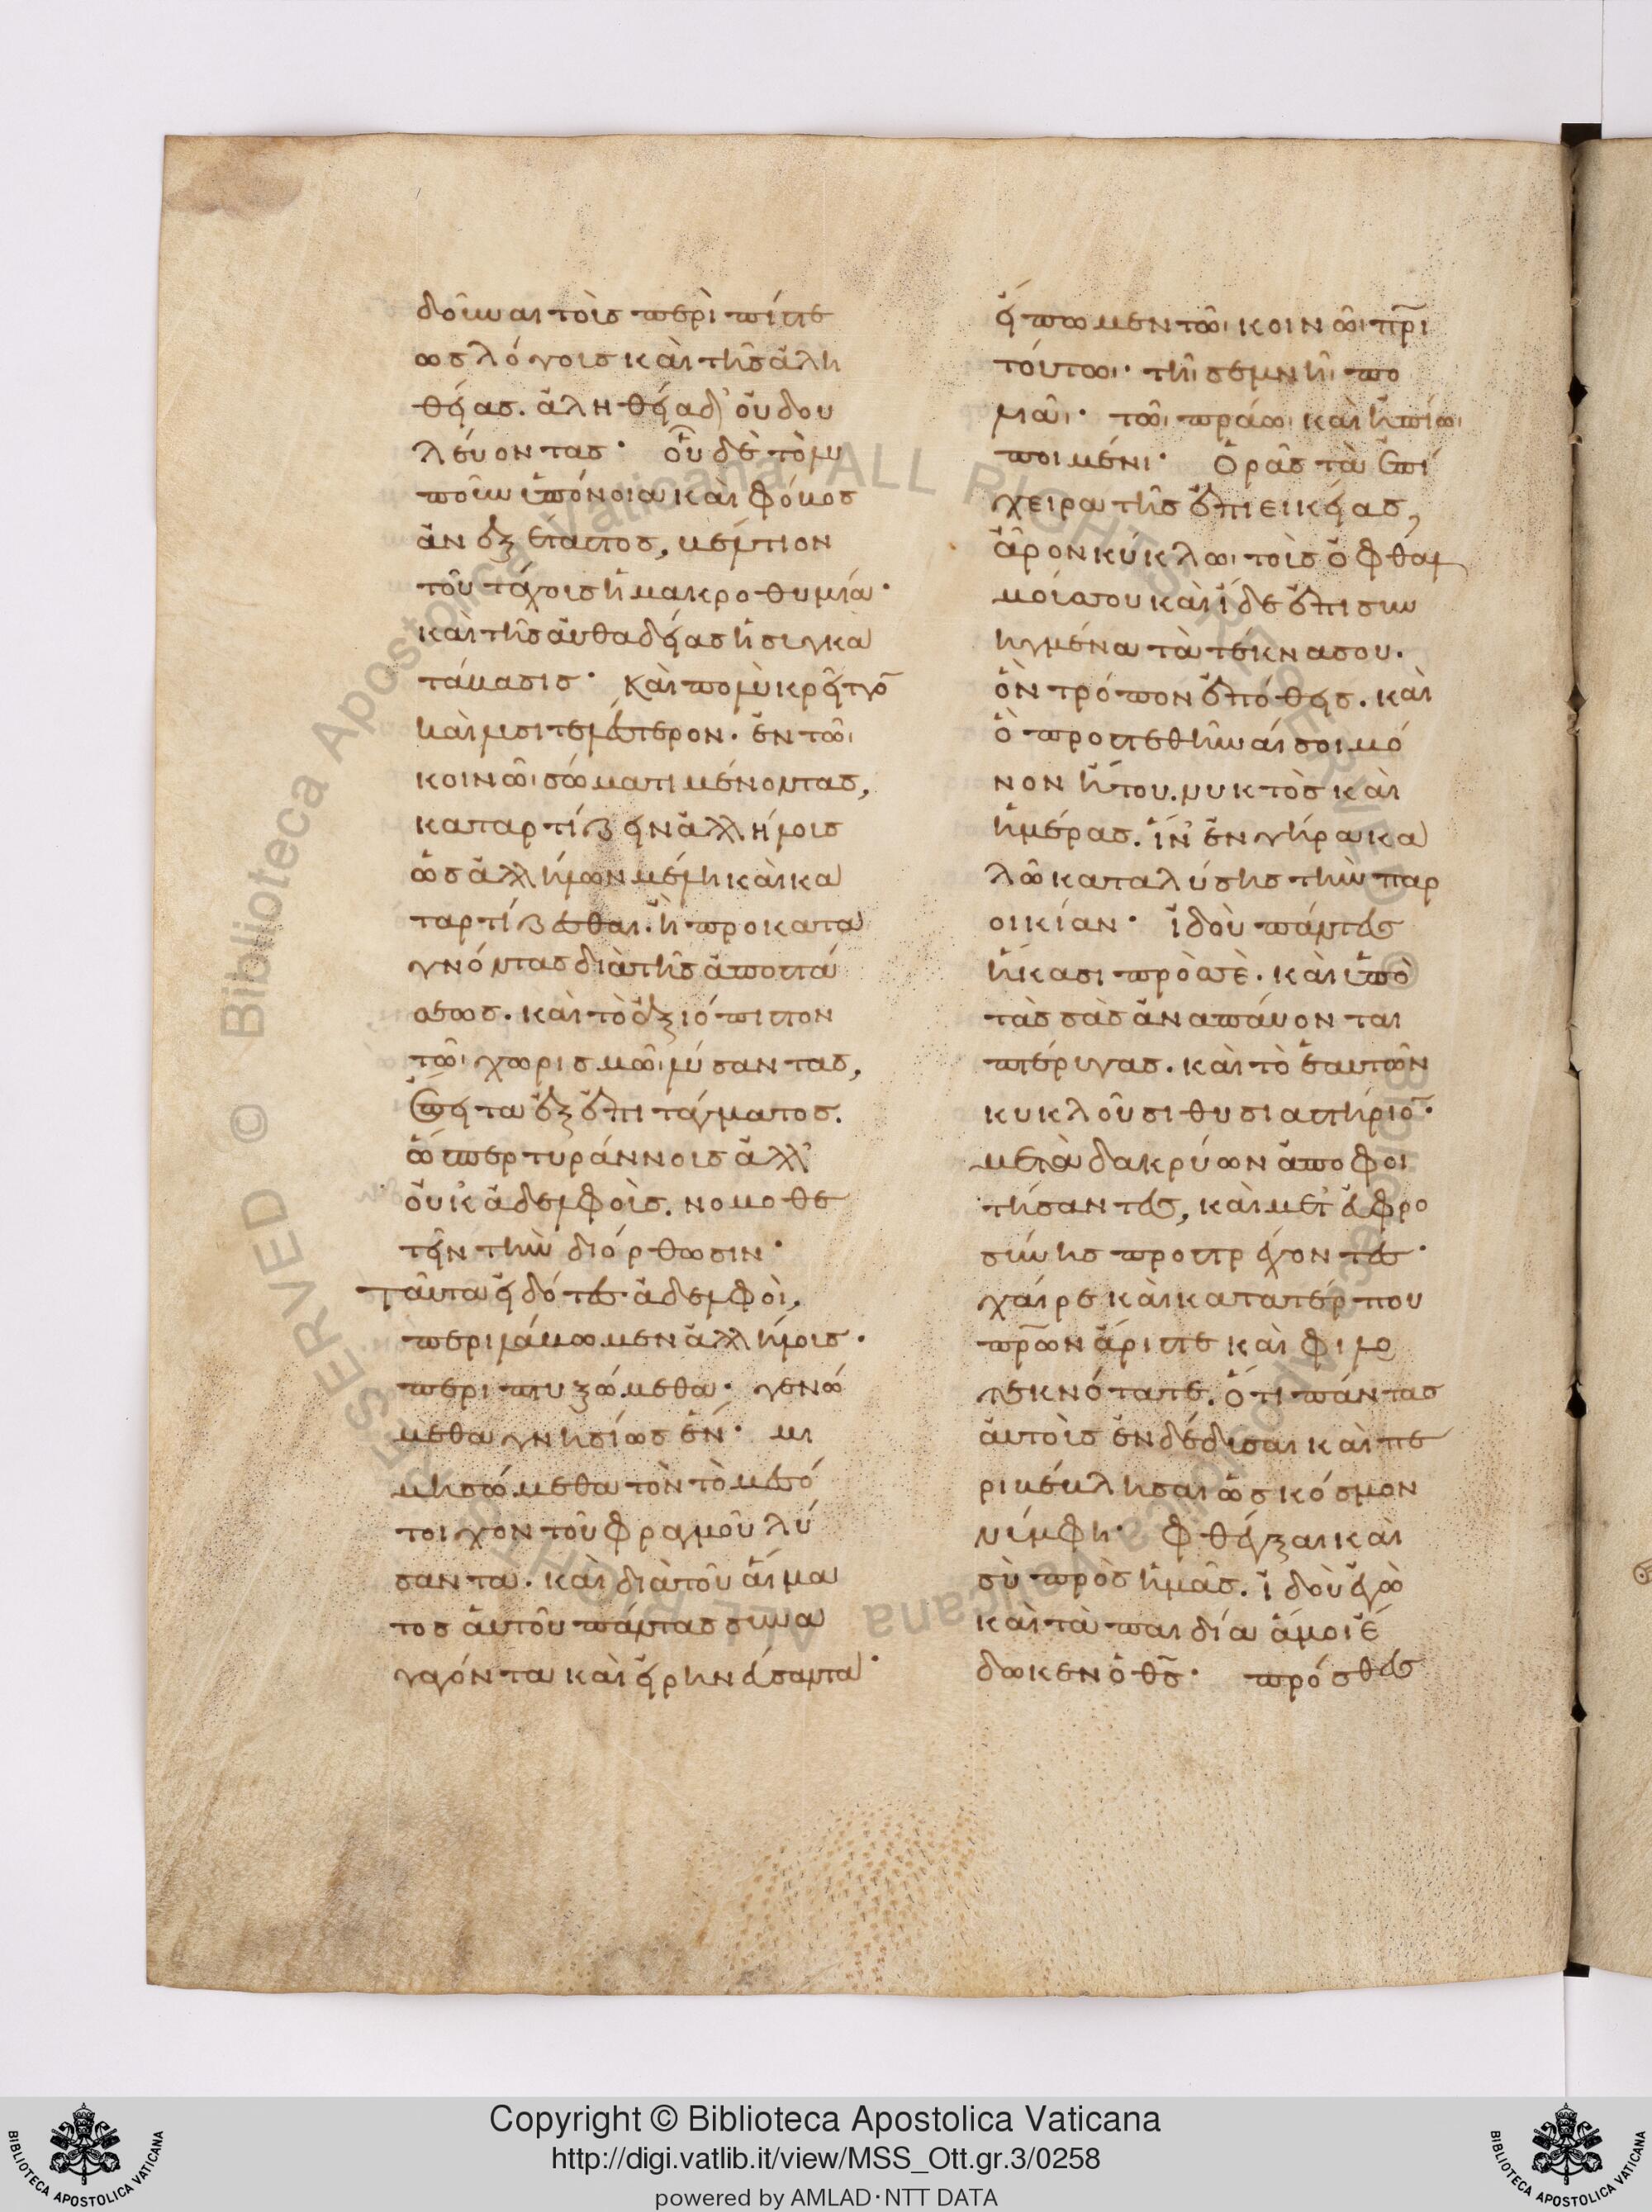 δοῦναι τοῖς περὶ πίστε
ως λόγοις καὶ τῆς ἀλη
θείας. ἀληθεία δ' οὐ δου
λεύοντας· οὗ δὲ τὸ λυ
ποῦν ὑπόνοια καὶ φόβος
ἀνεξέταστος, βέλτιον
τοῦ τάχους ἡ μακροθυμία·
καὶ τῆς αὐθαδείας ἡ συγκα
τάβασις· καὶ πολὺ κρεῖττο
καὶ λυσιτελέστερον. ἐν τῶι
κοινῶι σώματι μένοντας,
καταρτίζειν ἀλλήλους
ὡς ἀλλήλων μέλη καὶ κα
ταρτίζεσθαι. ἢ προκατα
γνόντας διὰ τῆς ἀποστά
σεως. καὶ τὸ ἀξιόπιστον
τῶι χωρισμῶι λύσαντας,
ἔπειτα ἐξ ἐπιτάγματος.
ὥσπερ τυράννοις ἀλλ'
οὐκ ἀδελφοῖς. νομοθε
τεῖν τὴν διόρθωσιν·
Ταῦτα εἰδότες ἀδελφοὶ,
περιλάβωμεν ἀλλήλους·
περιπτυξώμεθα· γενώ
μεθα γνησίως ἕν· μι
μησώμεθα τὸν τὸ μεσό
τοιχον τοῦ φραγμοῦ λύ
σαντα. καὶ διὰ τοῦ αἵμα
τος αὐτοῦ πάντας συνα
γαγόντα καὶ εἰρηνεύσαντα·
εἴπωμεν τῶι κοινῶι πρι
τούτωι· τῆι σεμνῆι πο
λιᾶι· τῶι πράωι καὶ ἡπίωι
ποιμένι· Ὁρᾶς τὰ ἐπί
χειρα τῆς ἐπιεικείας,
ἆρον κύκλωι τοὺς ὀφθαλ
μούς σου καὶ ἴδε ἐπισυν
ηγμένα τὰ τέκνα σου.
ὃν τρόπον ἐπόθεις. καὶ
ὃ προστεθῆναί σοι μό
νον ἤιτου. νυκτὸς καὶ
ἡμέρας. ἵν' ἐν γήρα κα
λῶ καταλύσηις τὴν παρ
οικίαν· ἰδοὺ πάντες
ἥκασι πρὸς σὲ. καὶ ὑπὸ
τὰς σὰς ἀναπαύονται
πτέρυγας. καὶ τὸ ἑαυτῶν
κυκλοῦσι θυσιαστήριο·
μετὰ δακρύων ἀποφοι
τήσαντες, καὶ μετ' εὐφρο
σύνης προστρέχοντες·
χαῖρε καὶ κατατέρπου
πρων ἄριστε καὶ φιλο
τεκνότατε. ὅτι πάντας
αὐτοὺς ἐνδέδυσαι καὶ πε
ριβέβλησαι ὡς κόσμον
νύμφη· φθέγξαι καὶ
σὺ πρὸς ἡμᾶς. ἰδοὺ ἐγὼ
καὶ τὰ παιδία ἅ μοι ἔ
δωκεν ὁ θς· πρόσθες